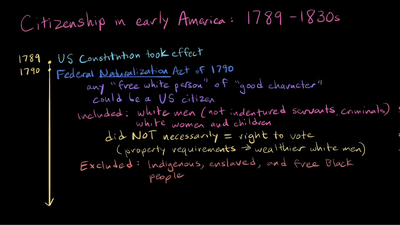 Citizenship in early America: 1789-1830s
1789 US Constitution took effect
1790 Federal Naturalization Act of 1790
any "free white person" of "good character"
could be a US citizen
Included: white men (not indentured servants, criminals)
white women and children
did NOT necessarily = right to vote
(property requirements → wealthier white men)
Excluded: Indigenous, enslaved, and free Black
people